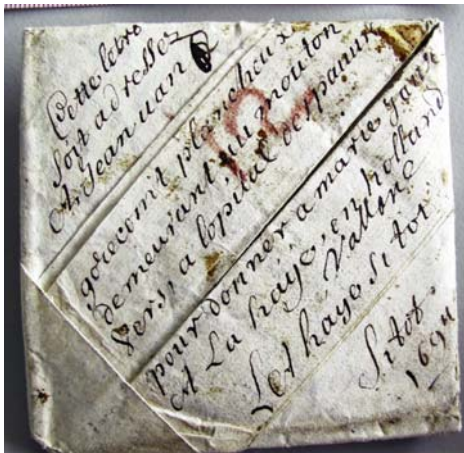 Cette lettre
soit adresser
A Jean van
gorecom't plancheur
demeurant au mouton
vers, a lopital
pour donner a marie
A La haye, en holland
Vallone
La haye si tot.
Si tot.
1694
12